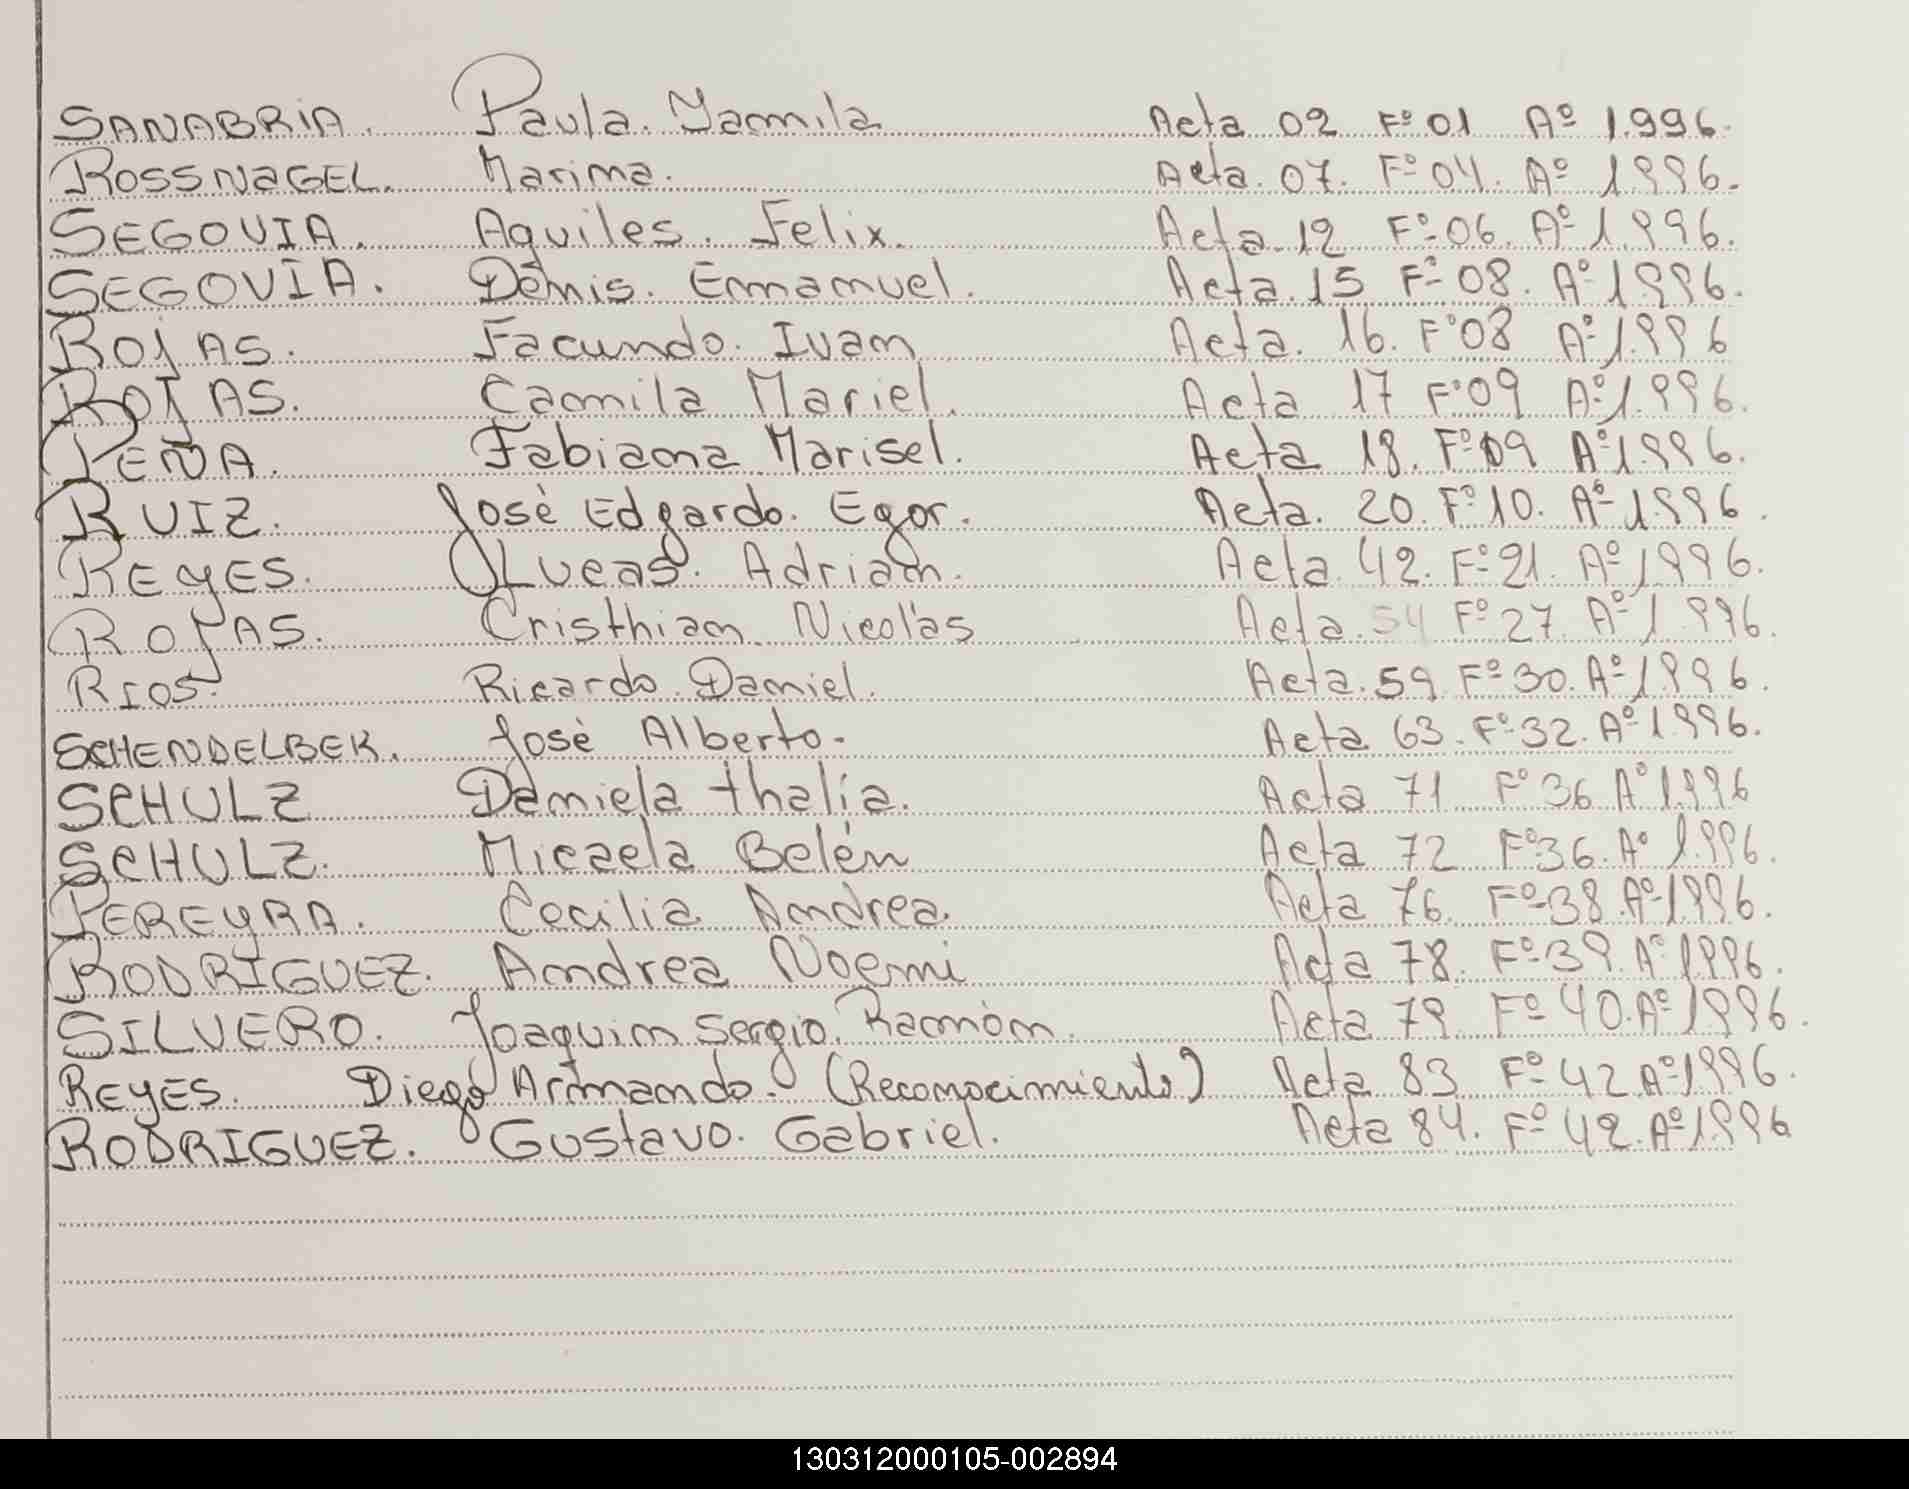 SANABRIA. Paula. Yamila Acta 02 Fº 01 Aº 1.996.
ROSSNAGEL. Marina. Acta. 07. Fº 04. Aº 1.996.
SEGOVIA. Aquiles. Felix. Acta. 12 Fº 06. Aº 1.996.
SEGOVIA. Denis. Emmanuel. Acta. 15 Fº 08. Aº 1.996.
ROJAS. Facundo. Ivan Acta. 16. Fº 08 Aº 1.996
ROJAS. Camila Mariel. Acta 17 Fº 09 Aº 1.996.
PEÑA. Fabiana Marisel. Acta 18. Fº 09 Aº 1.996.
RUIZ. José Edgardo. Egor. Acta. 20. Fº 10. Aº 1.996.
REYES. Lucas. Adrian. Acta. 42. Fº 21. Aº 1.996.
ROJAS. Cristhian Nicolás Acta. 54 Fº 27. Aº 1.996.
RIOS. Ricardo. Daniel. Acta. 59. Fº 30. Aº 1.996.
SCHENDELBEK. José Alberto. Acta 63. Fº 32. Aº 1.996.
SCHULZ Daniela thalía. Acta 71 Fº 36 Aº 1.996
SCHULZ. Micaela Belén Acta 72 Fº 36. Aº 1.996.
PEREYRA. Cecilia Andrea. Acta 76. Fº 38. Aº 1.996.
RODRIGUEZ. Andrea Noemi Acta 78. Fº 39. Aº 1.996.
SILVERO. Joaquin Sergio. Ramón. Acta 79. Fº 40. Aº 1.996.
REYES. Diego Armando. (Reconocimiento) Acta 83 Fº 42 Aº 1.996.
RODRIGUEZ. Gustavo. Gabriel. Acta 84. Fº 42. Aº 1.996
130312000105-002894